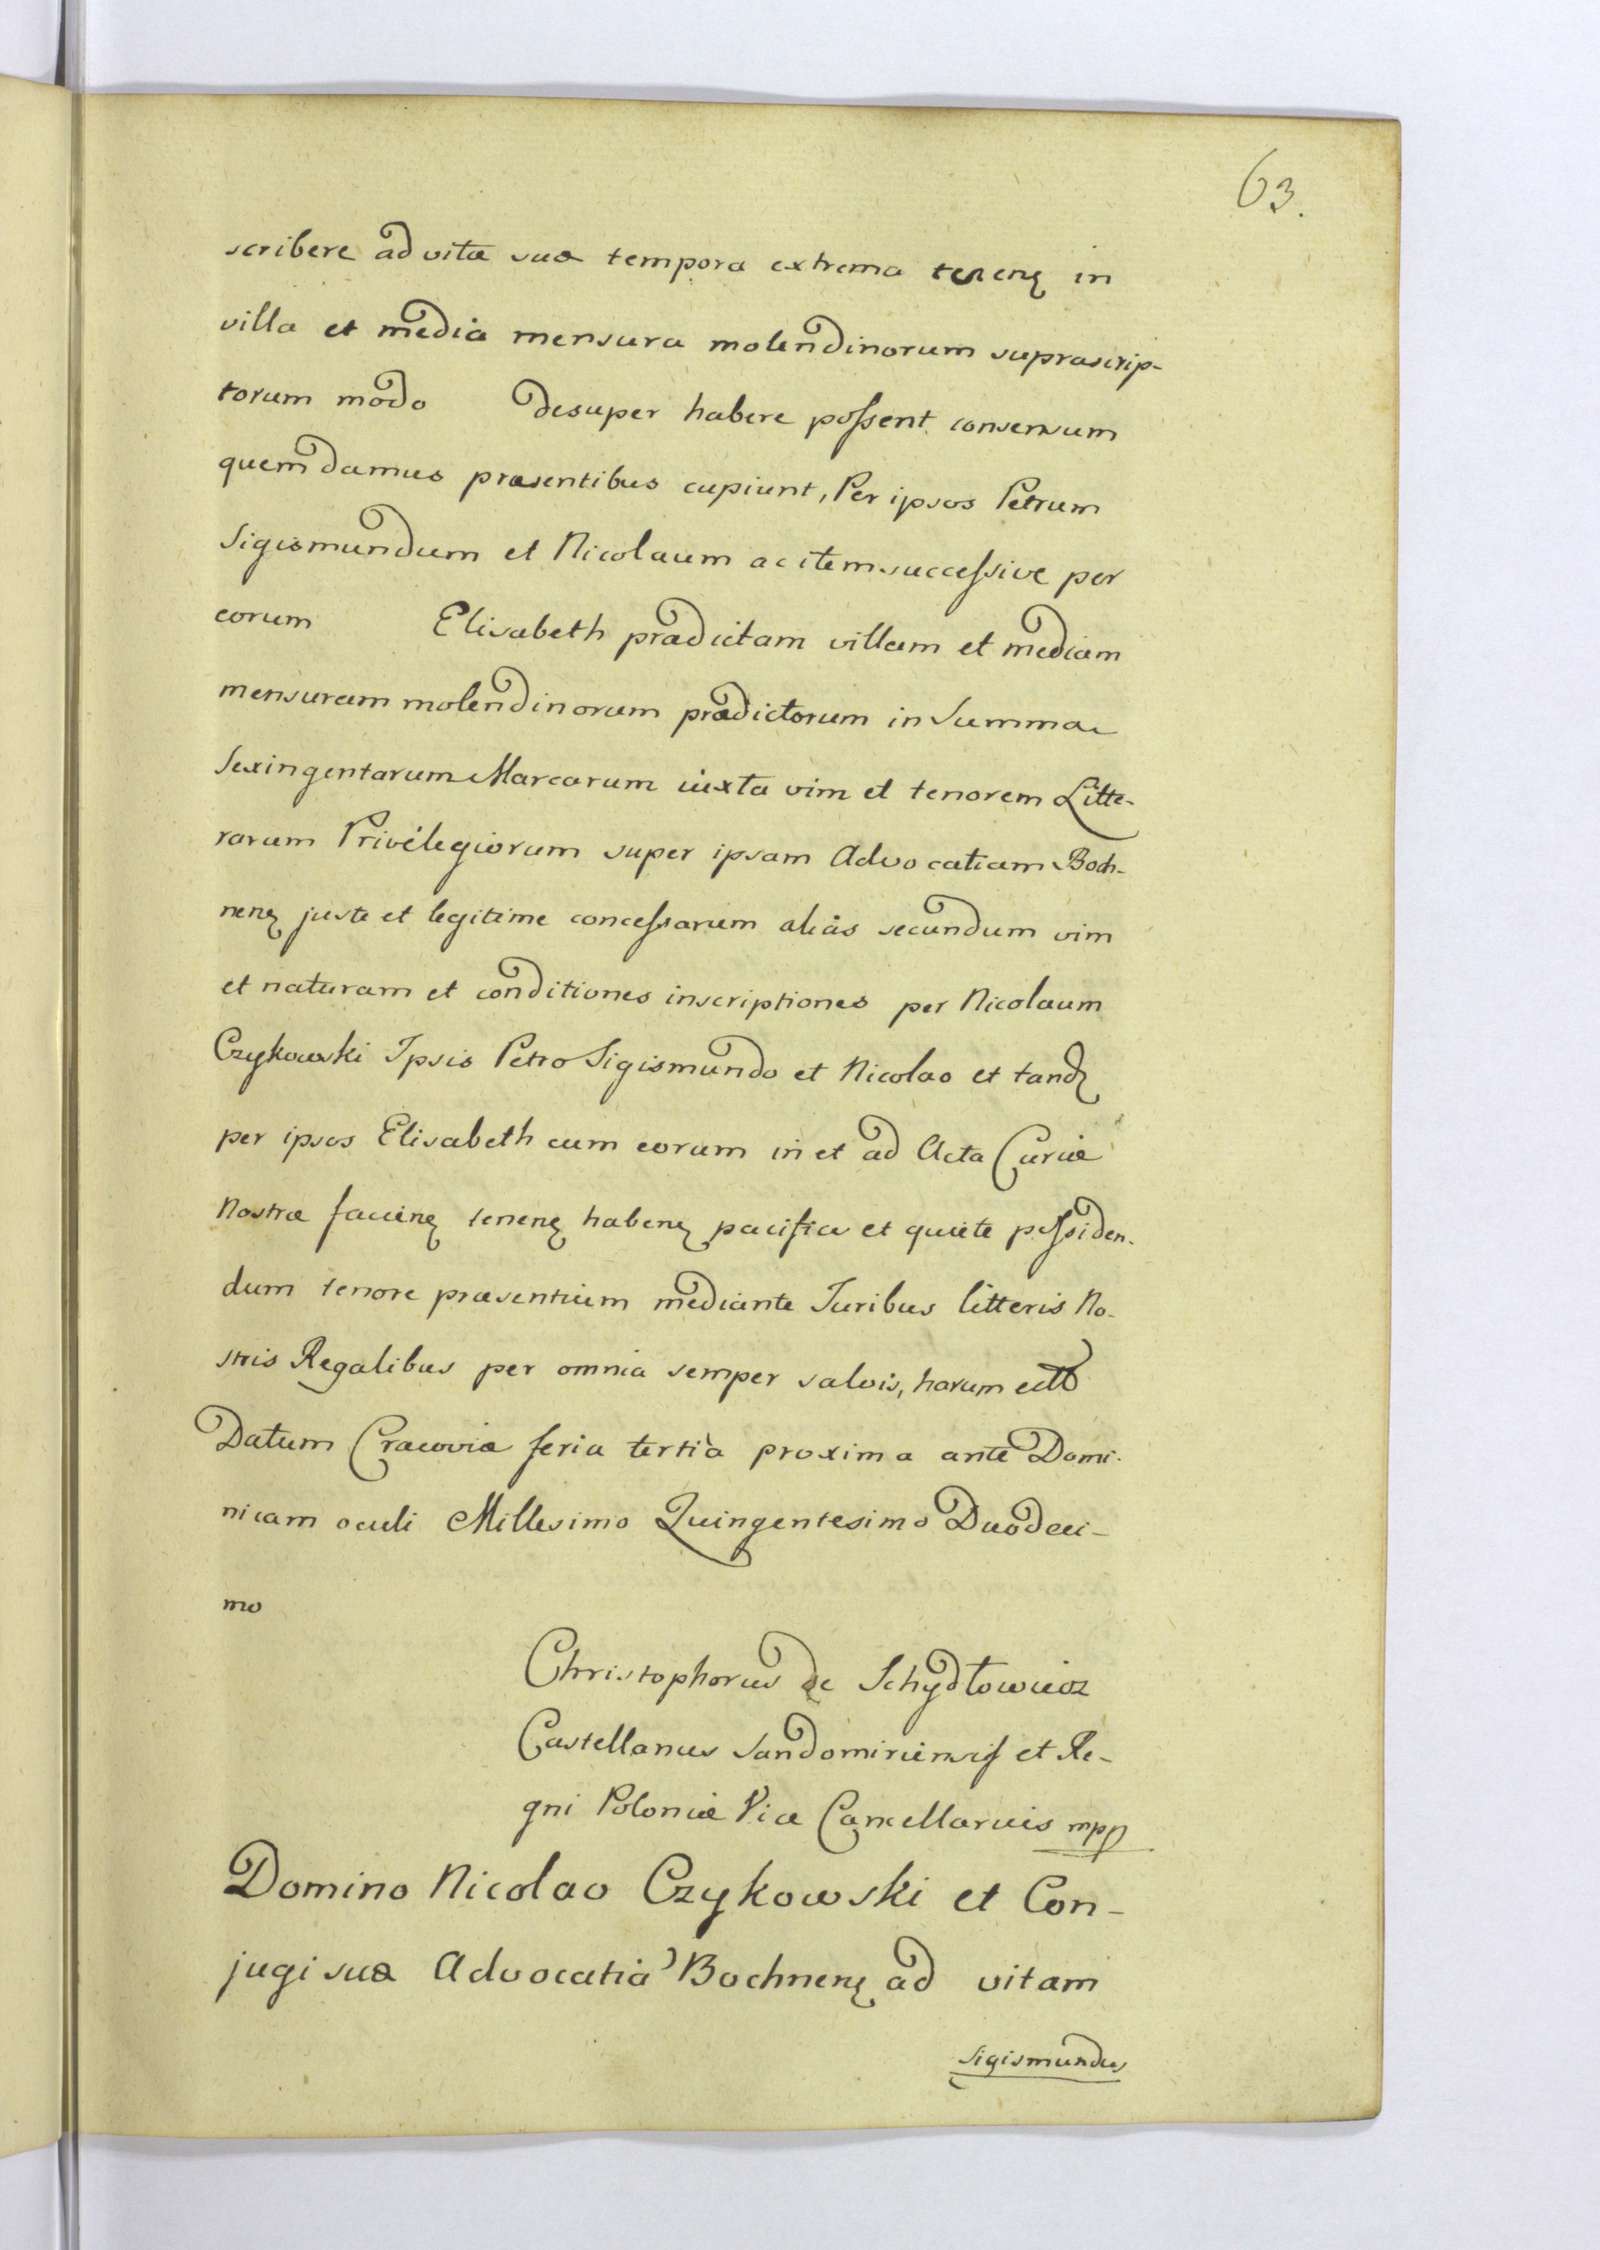 63.
scribere ad vitæ suæ tempora extrema tenenꝫ in
villa et media mensura molendinorum suprascrip-
torum modo desuper habere possent consensum
quem damus præsentibus cupiunt, Per ipsos Petrum
Sigismundum et Nicolaum ac item successive per
eorum Elisabeth prædictam villam et mediam
mensuram molendinorum prædictorum in Summa
Sexingentarum Marcarum iuxta vim et tenorem Litte-
rarum Privilegiorum super ipsam Advocatiam Boch-
nenꝫ juste et legitime concessarum alias secundum vim
et naturam et conditiones inscriptiones per Nicolaum
Czykowski Ipsis Petro Sigismundo et Nicolao et tandꝫ
per ipsos Elisabeth cum eorum in et ad Acta Curiæ
Nostræ facienꝫ tenenꝫ habenꝫ pacifice et quiete possiden-
dum tenore præsentium mediante Juribus litteris No-
stris Regalibus per omnia semper salvis, harum
Datum Cracoviæ feria tertia proxima ante Domi-
nicam oculi Millesimo Quingentesimo Duodeci-
mo
Christophorus de Schydłowiecz
Castellanus Sandomiriensis et Re-
gni Poloniæ Vice Cancellarius mpp
Domino Nicolao Czykowski et Con-
jugi suæ Advocatia Bochnenꝫ ad vitam
Sigismundus